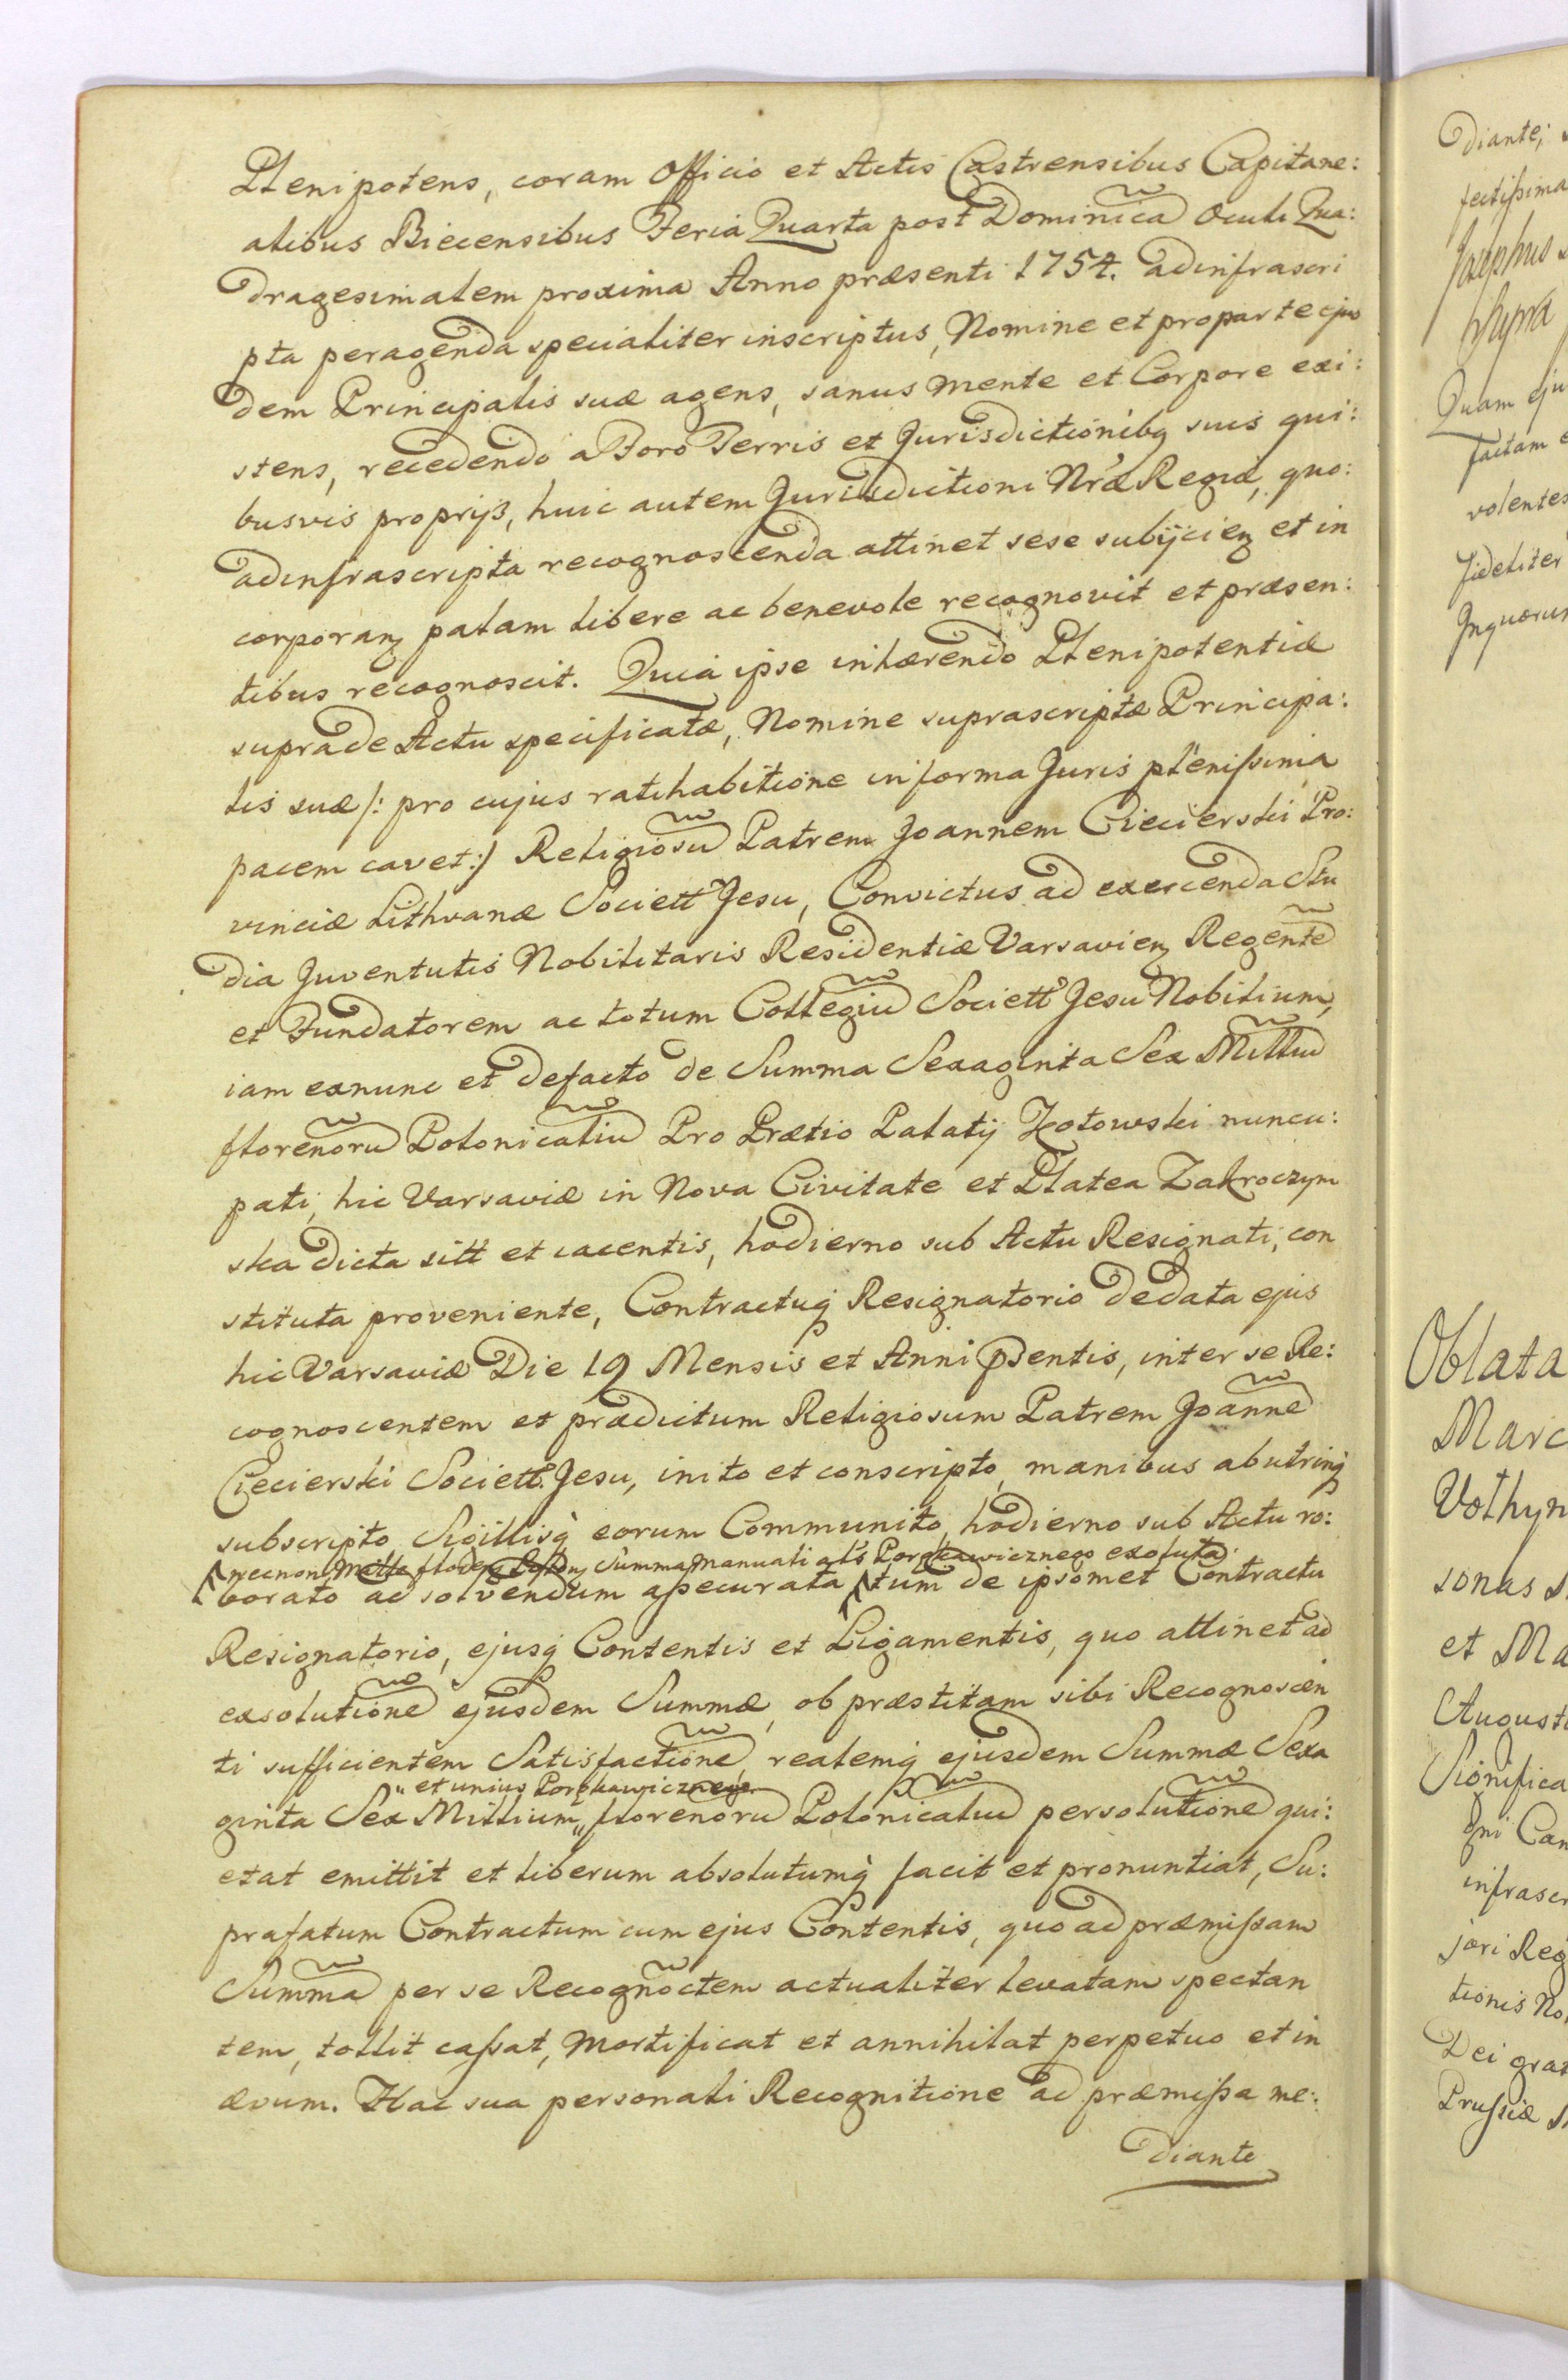 Plenipotens, coram Officio et Actis Castrensibus Capitane:
alibus Biecensibus Feria Quarta post Dominicã Oculi Qua:
dragesimalem proxima Anno præsenti 1754. ad infrascri
pta peragenda specialiter inscriptus, Nomine et pro parte ejus
dem Principalis suæ agens, sanus mente et Corpore exi:
stens, recedendo a Foro Terris et Jurisdictionibq suis qui:
busvis proprijs, huic autem Jurisdictioni Nræ Regiæ, quo:
ad infrascripta recognoscenda attinet sese subijcieņ et in
corporanȝ palam libere ac benevole recognovit et præsen:
tibus recognoscit. Quia ipse inhærendo Plenipotentiæ
supra de Actu specificatæ, Nomine suprascriptæ Principa:
lis suæ /: pro cujus ratihabitione in forma Juris plenissima
pacem cavet :/ Religiosũ Patrem Joannem Ciecierski Pro:
vinciæ LithvanæOciett Jesu, Convictus ad exercenda Stu
dia Juventutis Nobilitaris Residentiæ Varsavienȝ Regentẽ
et Fundatorem ac totum Collegiũ Societt Jesu Nobilium,
iam exnunc et defacto de Summa Sexaginta Sex Milliũ
florenorũ Polonicaliũ Pro Prætio Palatij Kotowski nuncu:
pati, hic Varsaviæ in Nova Civitate et Platea Zakroczym
ska dicta sitt et iacentis, hodierno sub Actu Resignati, con
stituta proveniente, Contractuq Resignatorio de data ejus
hic Varsaviæ Die 19 Mensis et Anni pntis, inter se Re:
cognoscentem et prædictum Religiosum Patrem Joannẽ
Ciecierski Societt. Jesu, inito et conscripto, manibus ab utrinq
subscripto Sigillisq eorum Communito, hodierno sub Actu ro:
necnon Summa Manuali als Porękawicznego exoluta
borato ad solvendum assecurata tum de ipsomet Contractu
Resignatorio, ejusq Contentis et Ligamentis, quo attinet ad
exsolutionẽ ejusdem Summæ, ob præstitam sibi Recognoscen
ti sufficientem Satisfactionẽ, realemq ejusdem Summæ Sexa
" et unius Porękawicznego
ginta Sex Millium " florenorũ Polonicaliũ persolutionẽ qui:
etat emittit et liberum absolutumq facit et pronuntiat, Su:
prafatum Contractum cum ejus Contentis, quo ad præmissam
Summã per se Recognoctem actualiter levatam spectan
tem, tollit cassat, Mortificat et annihilat perpetuo et in
ævum. Hac sua personali Recognitione ad præmissa me:
diante
Diante;
fectissima
Josephus
Quam eju
factam
volentes
fideliter
In quorum
Oblata
Marc
Volhyn
sonas
et Ma
Augusti
Significa
Gni Can
infrascr
jori Reg
tionis No
Dei grat
Prussiæ